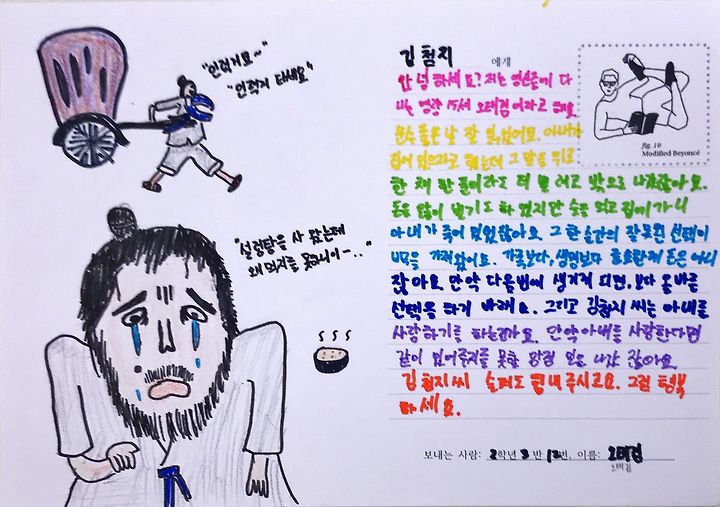 "인력거요~"
"인력거 타세요"
"설렁탕을 사 왔는데
왜 먹지를 못하니이-.."
김첨지 에게
안녕하세요? 저는 영선중에 다
니는 평범 15세 오태검이라고 해요
운수 좋은 날 잘 읽었어요. 아내가
집에 있으라고 했는데 그 말을 뒤로
한 채 한 푼이라도 더 벌려고 밖으로 나갔잖아요.
돈은 많이 벌기도 하였지만 술을 먹고 집에 가니
아내가 죽어 있었잖아요. 그 한 순간의 잘못된 선택이
비극을 가져왔어요. 가족보다, 생명보다 중요한 게 돈은 아니
잖아요 만약 다음번에 생기게 되면, 보다 올바른
선택을 하기 바래요. 그리고 김첨지 씨는 아내를
사랑하기를 하는건가요. 만약 아내를 사랑한다면
같이 있어주지를 못할 망정 일은 나갔잖아요.
김첨지씨 슬퍼도 힘내 주시고요. 그럼 행복
하세요.
fig. 10
Modified Beyoncé
보내는 사람: 2학년 3반 12번, 이름: 오태검
오태검